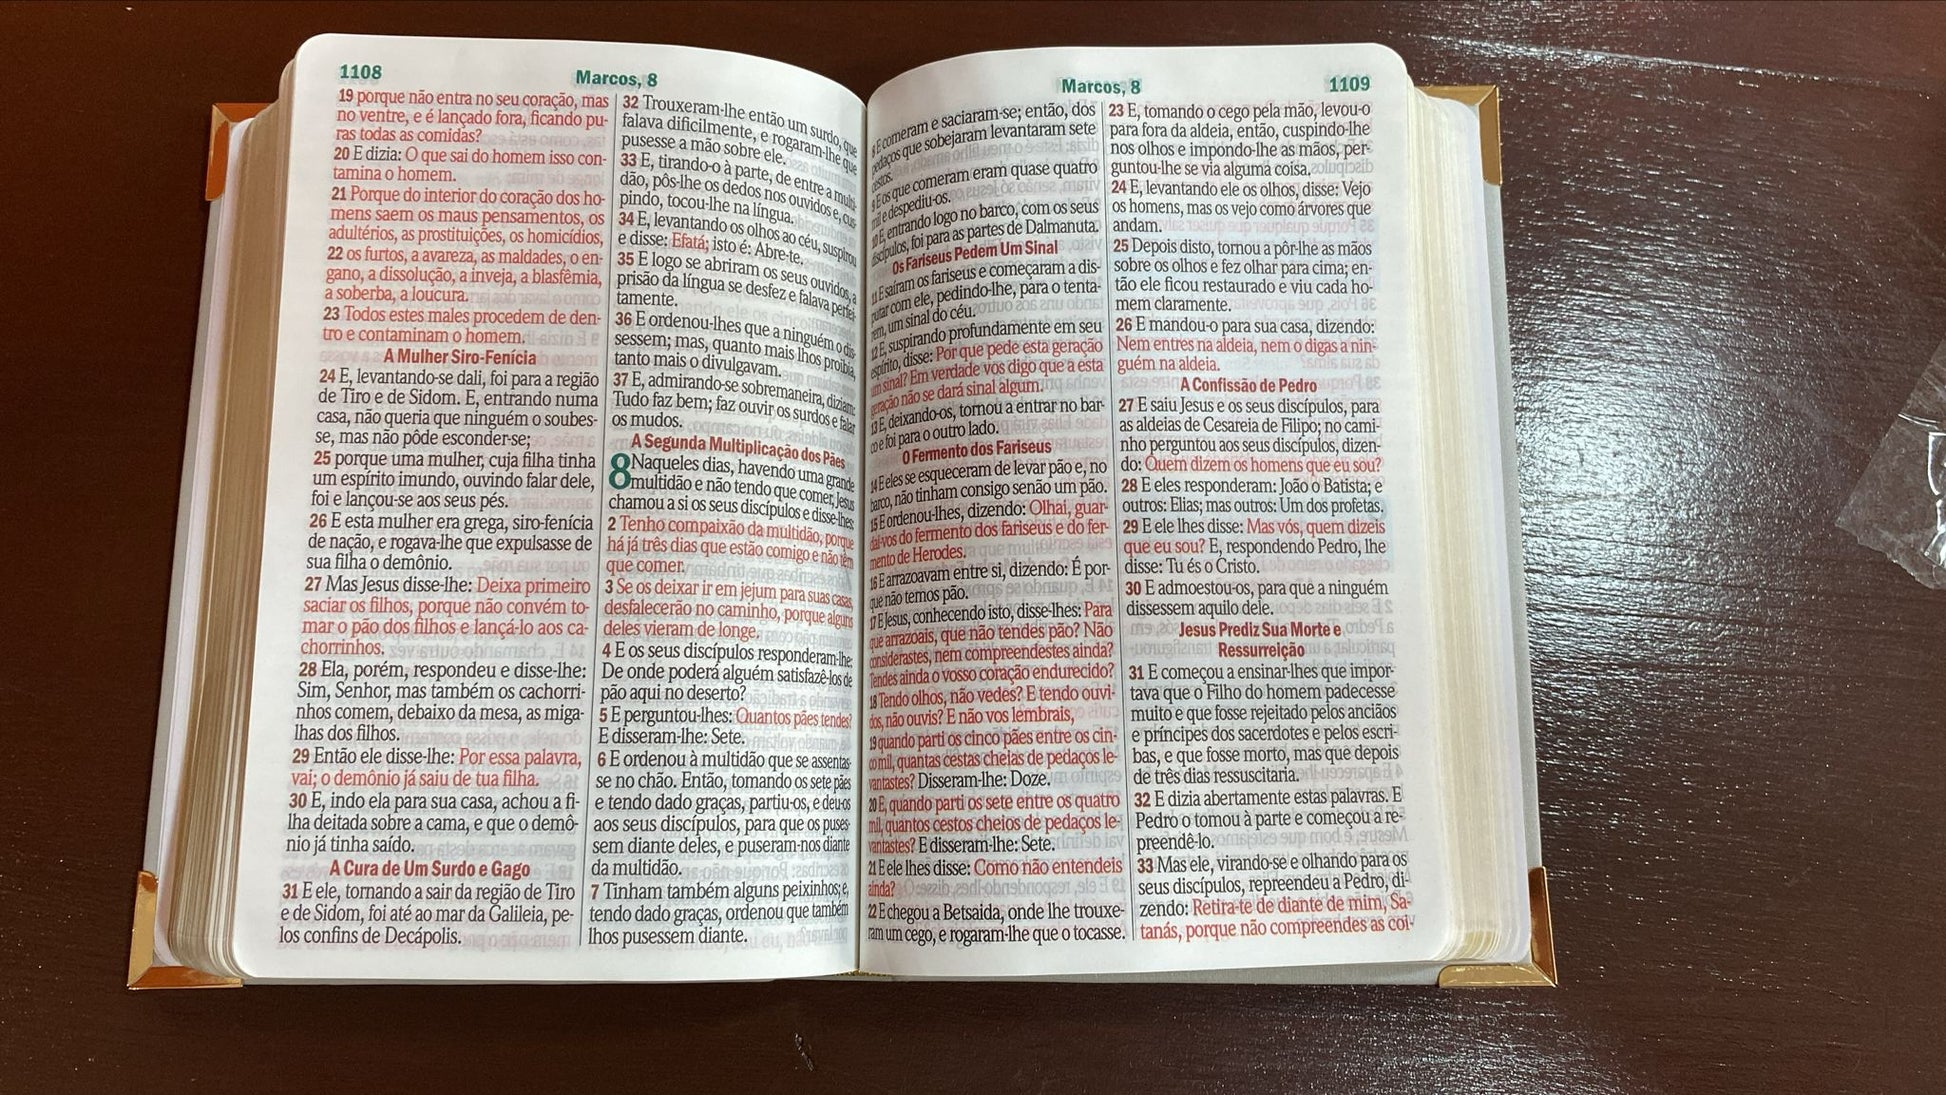 1108
Marcos, 8
19 porque não entra no seu coração, mas
no ventre, e é lançado fora, ficando pu-
ras todas as comidas?
20 E dizia: O que sai do homem isso con-
tamina o homem.
21 Porque do interior do coração dos ho-
mens saem os maus pensamentos, os
adultérios, as prostituições, os homicídios,
22 os furtos, a avareza, as maldades, o en-
gano, a dissolução, a inveja, a blasfêmia,
a soberba, a loucura.
23 Todos estes males procedem de den-
tro e contaminam o homem.
A Mulher Siro-Fenícia
24 E, levantando-se dali, foi para a região
de Tiro e de Sidom. E, entrando numa
casa, não queria que ninguém o soubes-
se, mas não pôde esconder-se;
25 porque uma mulher, cuja filha tinha
um espírito imundo, ouvindo falar dele,
foi e lançou-se aos seus pés.
26 E esta mulher era grega, siro-fenícia
de nação, e rogava-lhe que expulsasse de
sua filha o demônio.
27 Mas Jesus disse-lhe: Deixa primeiro
saciar os filhos, porque não convém to-
mar o pão dos filhos e lançá-lo aos ca-
chorrinhos.
28 Ela, porém, respondeu e disse-lhe:
Sim, Senhor, mas também os cachorri-
nhos comem, debaixo da mesa, as miga-
lhas dos filhos.
29 Então ele disse-lhe: Por essa palavra,
vai; o demônio já saiu de tua filha.
30 E, indo ela para sua casa, achou a fi-
lha deitada sobre a cama, e que o demô-
nio já tinha saído.
A Cura de Um Surdo e Gago
31 E ele, tornando a sair da região de Tiro
e de Sidom, foi até ao mar da Galileia, pe-
los confins de Decápolis.
32 Trouxeram-lhe então um surdo, que
falava dificilmente, e rogaram-lhe que
pusesse a mão sobre ele.
33 E, tirando-o à parte, de entre a multi-
dão, pôs-lhe os dedos nos ouvidos e, cus-
pindo, tocou-lhe na língua.
34 E, levantando os olhos ao céu, suspirou
e disse: Efatá; isto é: Abre-te.
35 E logo se abriram os seus ouvidos, a
prisão da língua se desfez e falava perfei-
tamente.
36 E ordenou-lhes que a ninguém o dis-
sessem; mas, quanto mais lhos proibia,
tanto mais o divulgavam.
37 E, admirando-se sobremaneira, diziam:
Tudo faz bem; faz ouvir os surdos e falar
os mudos.
A Segunda Multiplicação dos Pães
8 Naqueles dias, havendo uma grande
multidão e não tendo que comer, Jesus
chamou a si os seus discípulos e disse-lhes
2 Tenho compaixão da multidão, porque
há já três dias que estão comigo e não têm
que comer.
3 Se os deixar ir em jejum para suas casas,
desfalecerão no caminho, porque alguns
deles vieram de longe.
4 E os seus discípulos responderam-lhe:
De onde poderá alguém satisfazê-los de
pão aqui no deserto?
5 E perguntou-lhes: Quantos pães tendes?
E disseram-lhe: Sete.
6 E ordenou à multidão que se assentas-
se no chão. Então, tomando os sete pães
e tendo dado graças, partiu-os, e deu-os
aos seus discípulos, para que os puses-
sem diante deles, e puseram-nos diante
da multidão.
7 Tinham também alguns peixinhos; e,
tendo dado graças, ordenou que também
lhos pusessem diante.
Marcos, 8
1109
8 E comeram e saciaram-se; então, dos
pedaços que sobejaram levantaram sete
cestos.
9 E os que comeram eram quase quatro
mil e despediu-os.
10 E, entrando logo no barco, com os seus
discípulos, foi para as partes de Dalmanuta.
Os Fariseus Pedem Um Sinal
11 E saíram os fariseus e começaram a dis-
putar com ele, pedindo-lhe, para o tenta-
rem, um sinal do céu.
12 E, suspirando profundamente em seu
espírito, disse: Por que pede esta geração
um sinal? Em verdade vos digo que a esta
geração não se dará sinal algum.
13 E, deixando-os, tornou a entrar no bar-
co e foi para o outro lado.
O Fermento dos Fariseus
14 E eles se esqueceram de levar pão e, no
barco, não tinham consigo senão um pão.
15 E ordenou-lhes, dizendo: Olhai, guar-
dai-vos do fermento dos fariseus e do fer-
mento de Herodes.
16 E arrazoavam entre si, dizendo: É por-
que não temos pão.
17 E Jesus, conhecendo isto, disse-lhes: Para
que arrazoais, que não tendes pão? Não
considerastes, nem compreendestes ainda?
Tendes ainda o vosso coração endurecido?
18 Tendo olhos, não vedes? E tendo ouvi-
dos, não ouvis? E não vos lembrais,
19 quando parti os cinco pães entre os cin-
co mil, quantas cestas cheias de pedaços le-
vantastes? Disseram-lhe: Doze.
20 E, quando parti os sete entre os quatro
mil, quantos cestos cheios de pedaços le-
vantastes? E disseram-lhe: Sete.
21 E ele lhes disse: Como não entendeis
ainda?
22 E chegou a Betsaida, onde lhe trouxe-
ram um cego, e rogaram-lhe que o tocasse.
23 E, tomando o cego pela mão, levou-o
para fora da aldeia, então, cuspindo-lhe
nos olhos e impondo-lhe as mãos, per-
guntou-lhe se via alguma coisa.
24 E, levantando ele os olhos, disse: Vejo
os homens, mas os vejo como árvores que
andam.
25 Depois disto, tornou a pôr-lhe as mãos
sobre os olhos e fez olhar para cima; en-
tão ele ficou restaurado e viu cada ho-
mem claramente.
26 E mandou-o para sua casa, dizendo:
Nem entres na aldeia, nem o digas a nin-
guém na aldeia.
A Confissão de Pedro
27 E saiu Jesus e os seus discípulos, para
as aldeias de Cesareia de Filipo; no cami-
nho perguntou aos seus discípulos, dizen-
do: Quem dizem os homens que eu sou?
28 E eles responderam: João o Batista; e
outros: Elias; mas outros: Um dos profetas.
29 E ele lhes disse: Mas vós, quem dizeis
que eu sou? E, respondendo Pedro, lhe
disse: Tu és o Cristo.
30 E admoestou-os, para que a ninguém
dissessem aquilo dele.
Jesus Prediz Sua Morte e
Ressurreição
31 E começou a ensinar-lhes que impor-
tava que o Filho do homem padecesse
muito e que fosse rejeitado pelos anciãos
e príncipes dos sacerdotes e pelos escri-
bas, e que fosse morto, mas que depois
de três dias ressuscitaria.
32 E dizia abertamente estas palavras. E
Pedro o tomou à parte e começou a re-
preendê-lo.
33 Mas ele, virando-se e olhando para os
seus discípulos, repreendeu a Pedro, di-
zendo: Retira-te de diante de mim, Sa-
tanás, porque não compreendes as coi-